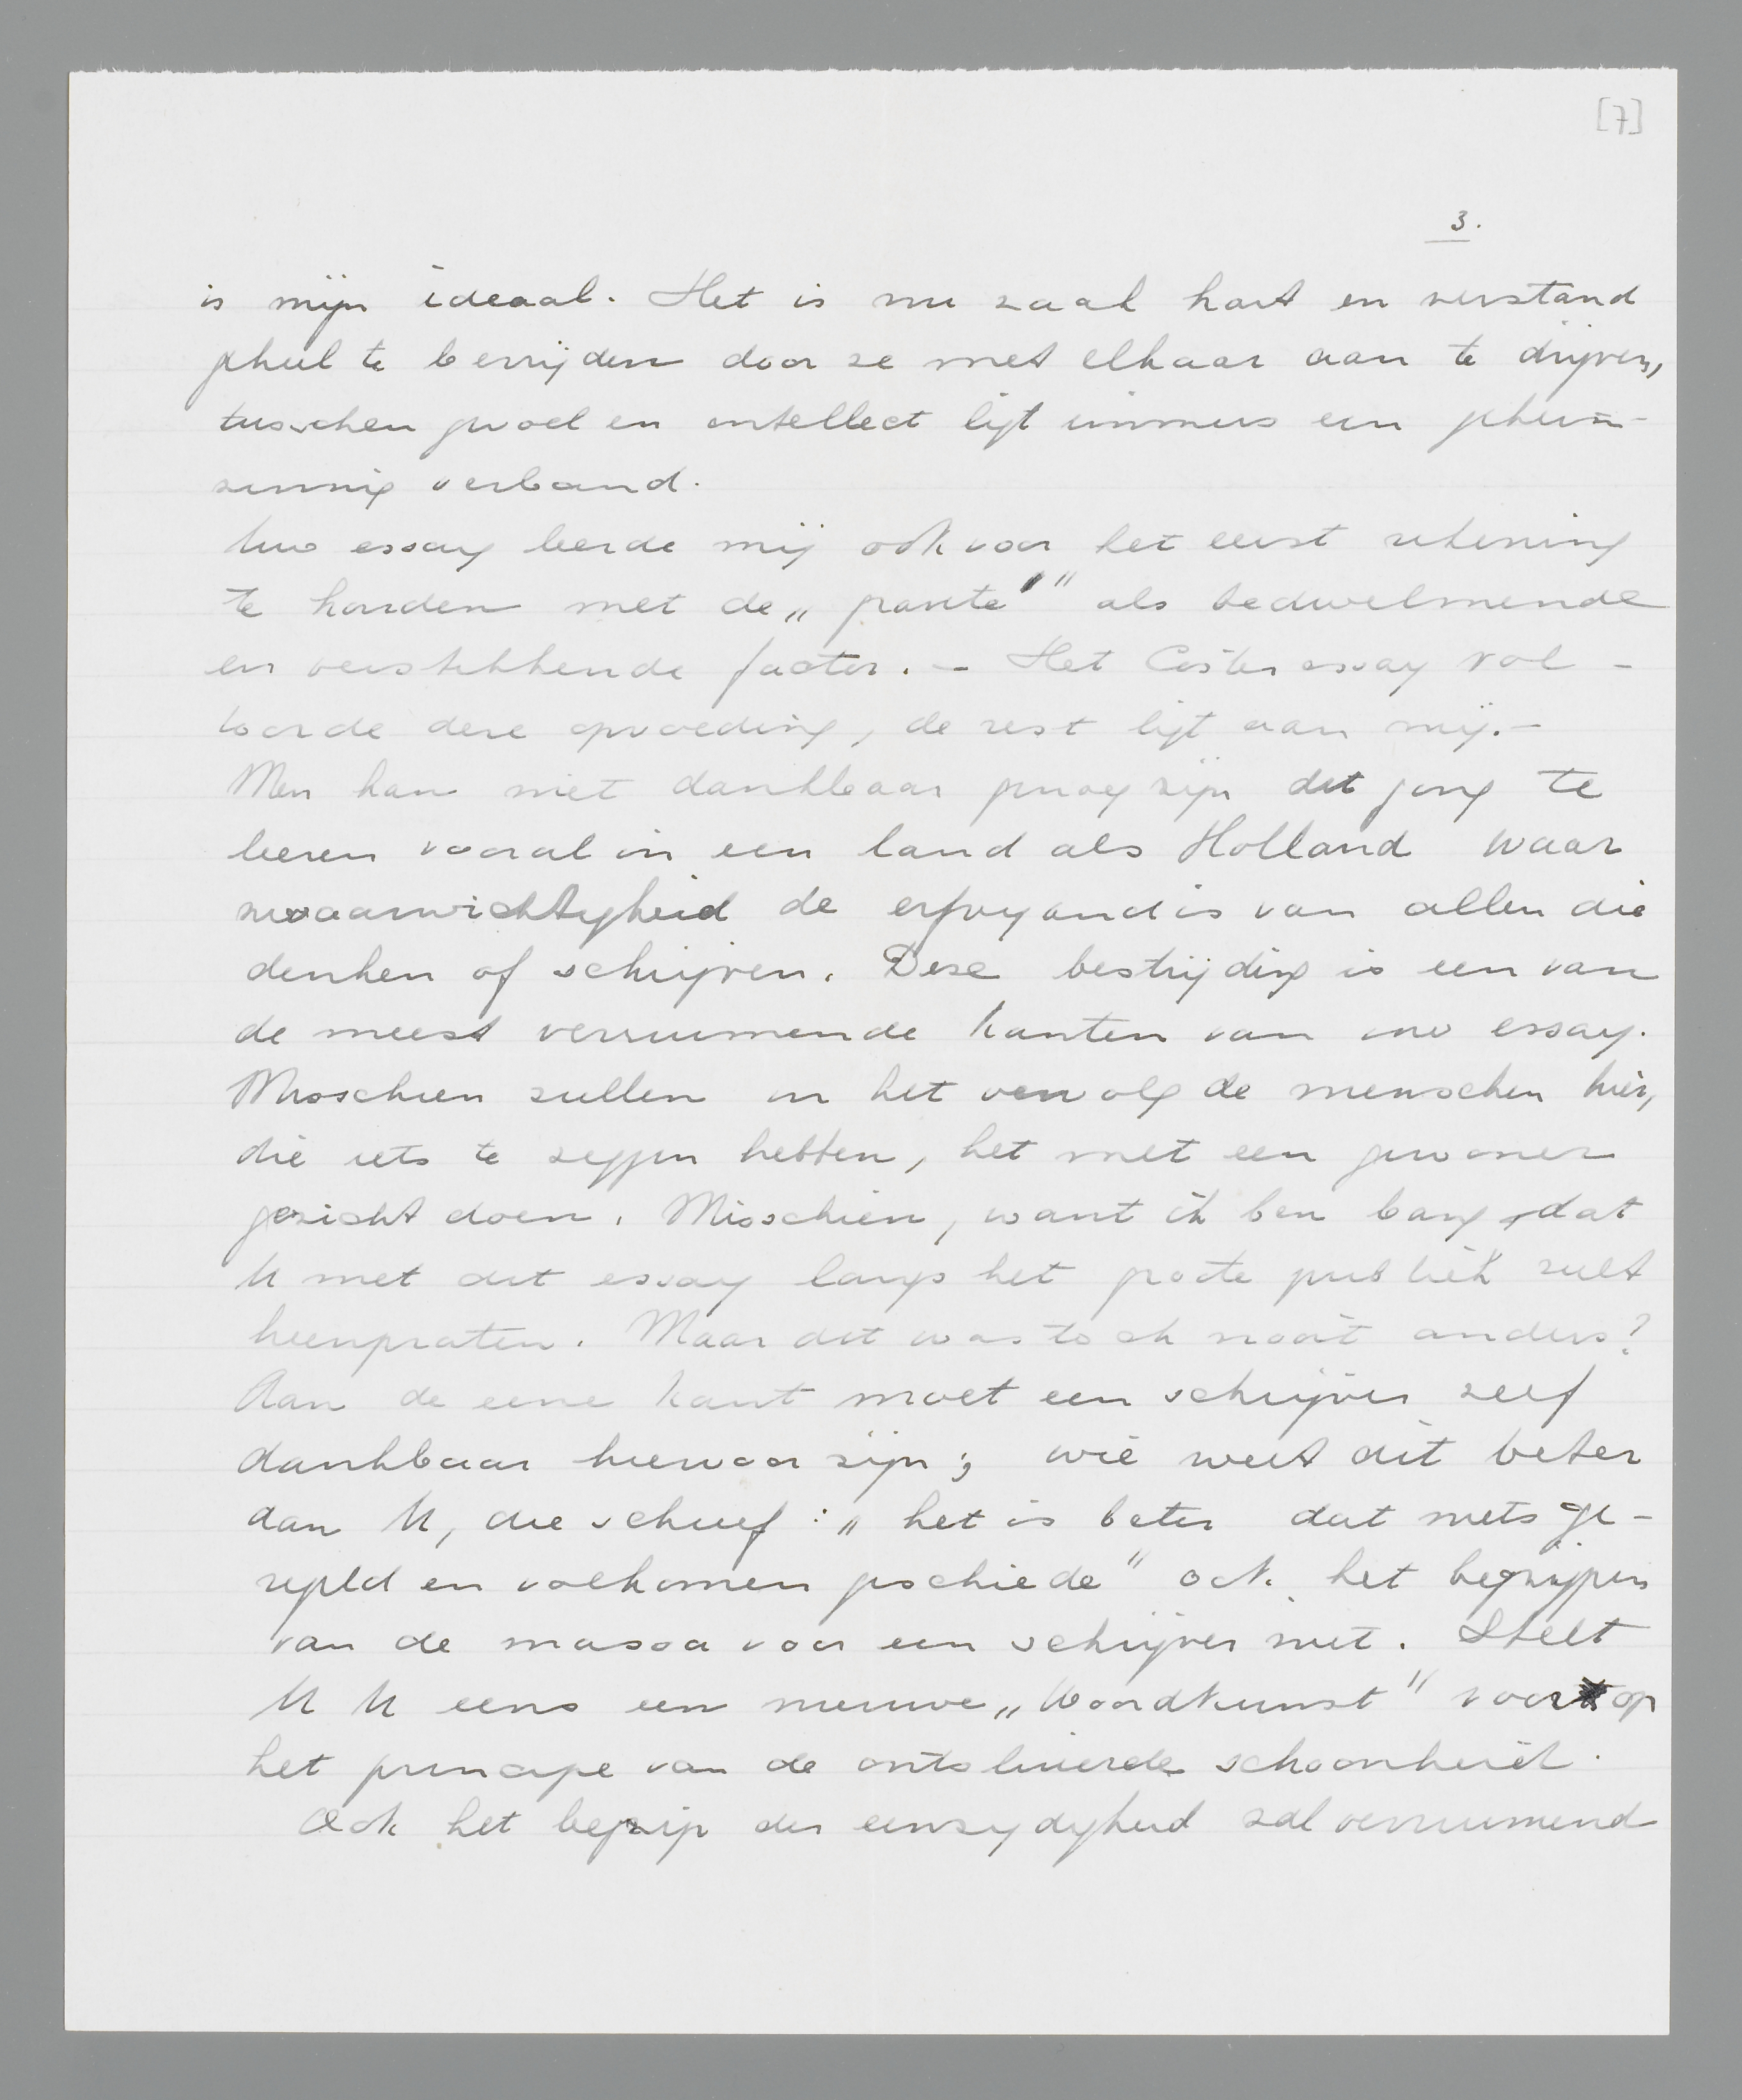 [7]
3.
is mijn ideaal. Het is nu zaak hart en verstand
geheel te bevrijden door ze met elkaar aan te drijven,
tusschen gevoel en intellect ligt immers een geheim-
zinnig verband.
Uw essay leerde mij ook voor het eerst rekening
te houden met de „gravité" als bedwelmende
en verstikkende factor. – Het Coster essay vol-
tooide deze opvoeding, de rest ligt aan mij. –
Men kan niet dankbaar genoeg zijn dit jong te
leeren vooral in een land als Holland waar
zwaarwichtigheid de erfvyand is van allen die
denken of schrijven. Deze bestrijding is een van
de meest verruimende kanten van uw essay.
Misschien zullen in het vervolg de menschen hier,
die iets te zeggen hebben, het met een gewoner
gezicht doen. Misschien, want ik ben bang, dat
U met dit essay langs het groote publiek zult
heenpraten. Maar dit was toch nooit anders?
Aan de eene kant moet een schrijver zelf
dankbaar hiervoor zijn; wie weet dit beter
dan U, die schreef: „het is beter dat niets ge-
regeld en volkomen geschiede" ook het begrijpen
van de massa voor een schrijver niet. Stelt
U U eens een nieuwe „Woordkunst" voor op
het principe van de schoonheid.
Ook het begrip der eenzydigheid zal verruimend